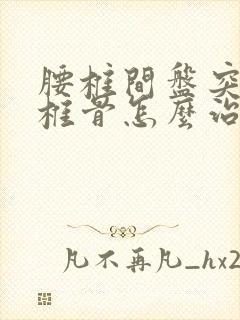 腰柱間盤突
柱骨怎麼治
凡不再凡_hx2